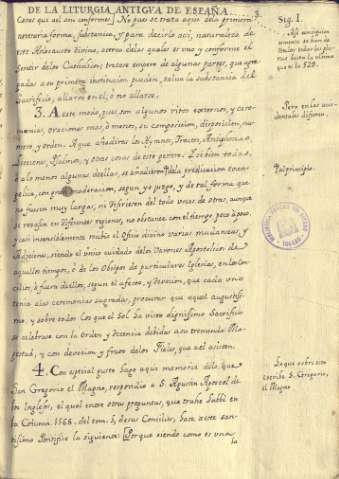 DE LA LITURGIA ANTIGVA DE ESPAÑA. 3.
Sig. I.
Cates que asi son conformes. No pues se trata aqui dela primera
forma, substancia, y para decirlo asi, naturaleza de
este Holocausto divino, acerca delas quales es uno y conforme el
sentir delos Catholicos; tratase empero de algunas partes, que agre-
gadas a su primera institucion pueden, salva la substancia del
Sacrificio, allarse en el, ò no allarse.
3. A este modo, pues, son algunos ritos externos, y cere-
monias, oraciones mas, ò menos, su composicion, disposicion, nu-
mero, y orden. A que añadiras los Hymnos, Tractos, Antiphonas,
Lecciones, Psalmos, y otas cosas de este genero. I si bien todas,
a lo menos algunas de ellas, se añadieron dela predicacion evan-
gelica, con gran moderacion, segun yo juzgo, y de tal forma que
no fuesen muy largas, ni difiriesen del todo unas de otras, aunque
se rezasen en diferentes regiones, no obstante con el tiempo poco à poco,
y casi insensiblemente recibio el Oficio divino varias mudanzas, y
Adiciones, siendo el unico cuidado delos Varones Apostolicos de
aquellos tiempos, ò de los Obispos de particulares Iglesias, en los Con-
cilios, ò fuera de ellos, segun el afecto, y devocion, que cada uno
tenia alas ceremonias sagradas, procurar que aquel augustissi-
mo, y sobre todos los que el Sol ha visto dignissimo Sacrificio
se celebrase con la orden y decencia debidas a su tremenda Ma-
gestad, y con devocion y fruto delos Fieles, que a el asisten.
4. Con especial gusto hago aqui memoria delo que
San Gregorio el Magno, respondio a S. Agustin Apostol de
los Ingleses, el qual entre otras preguntas, que trahe Labbè en
la Columna 1568. del tom. 5. de sus Concilios, hace a este san-
tissimo Pontifice la siguiente: Porque siendo como es una
la
Pero en las acci-
dentales difieren.
Al principio.
Lo que sobre esto
escribe S. Gregorio,
el Magno
TOLEDO